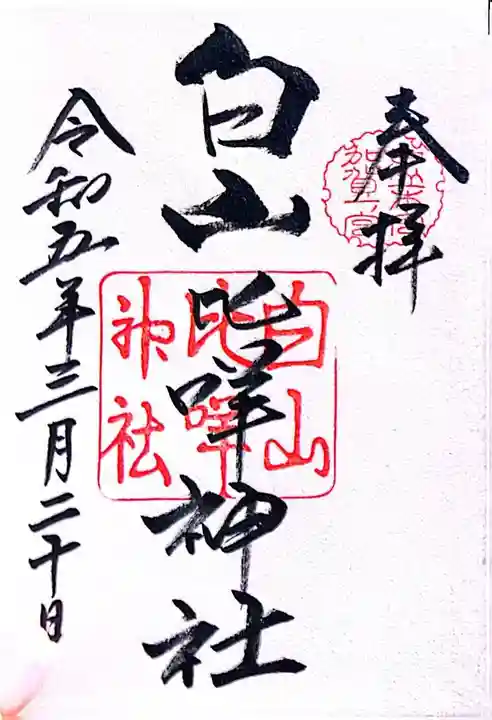 奉拝
加賀一宮
白山比咩神社
白山
比咩
神社
令和五年三月二十日